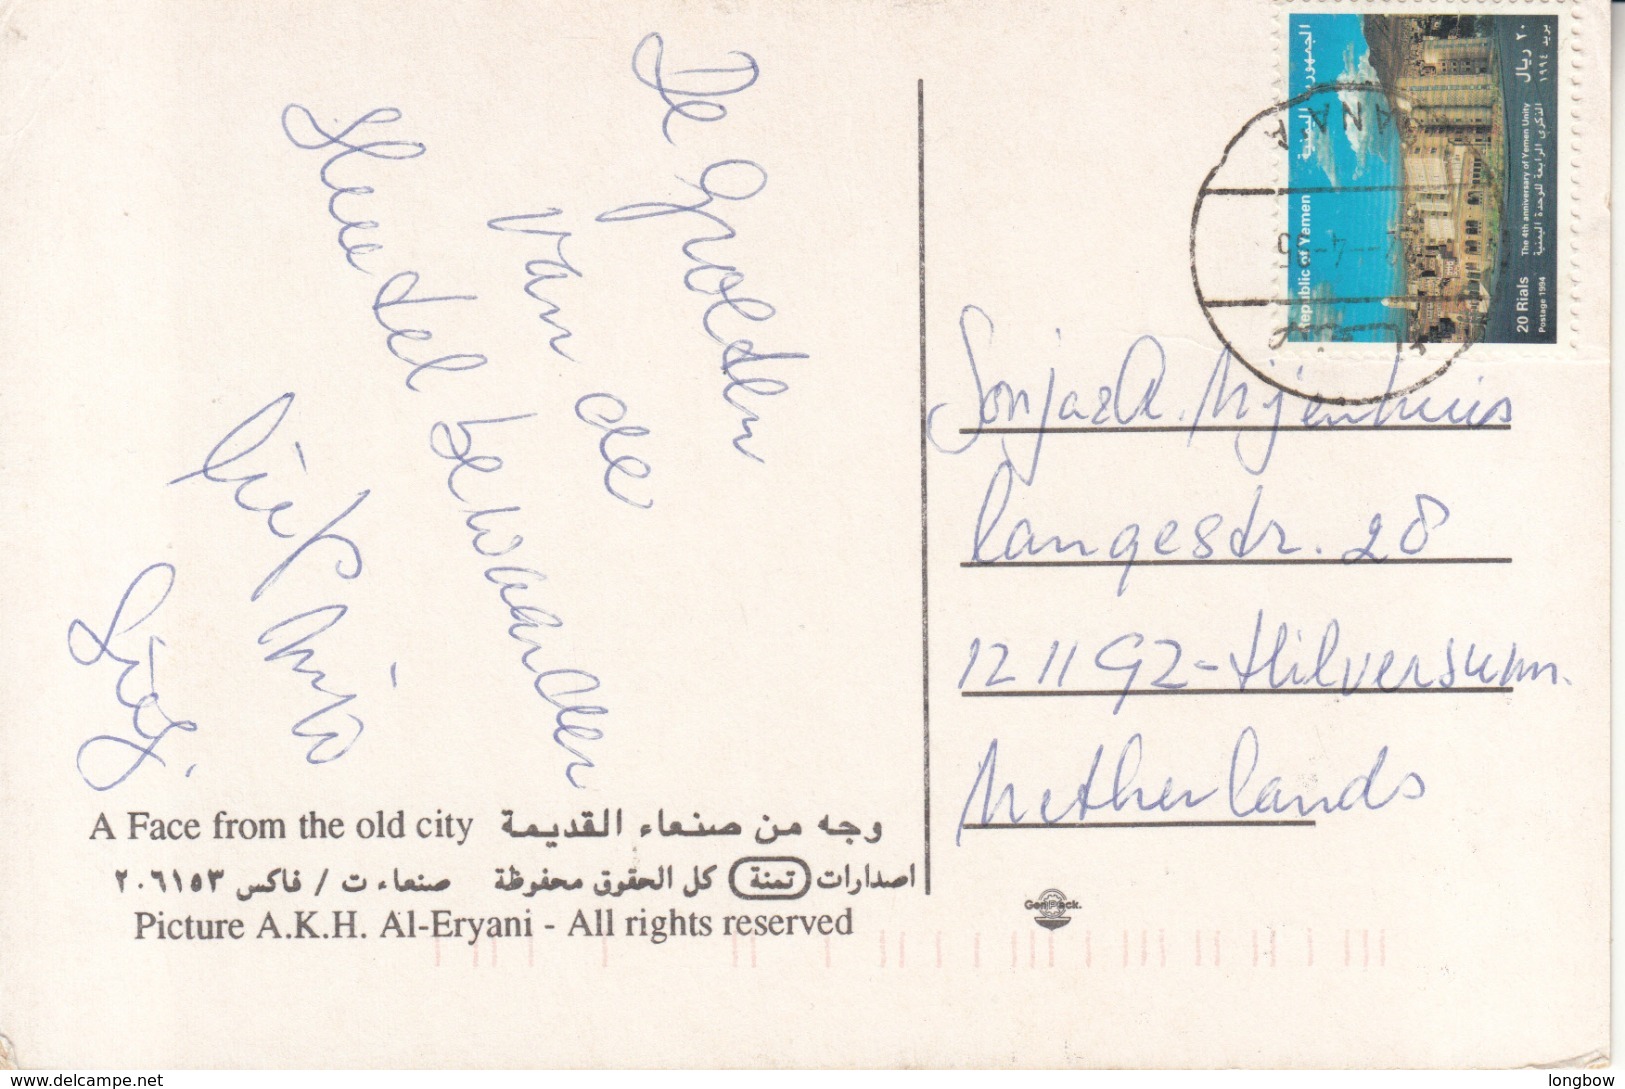 De Groeten
van de
Sleutel bewaarder
Liefs
A Face from the old city وجه من صنعاء القديمة
اصدارات (تمنة) كل الحقوق محفوظة صنعاء ت / فاكس ٢٠٦١٥٣
Picture A.K.H. Al-Eryani - All rights reserved
الجمهورية اليمنية
Republic of Yemen
٢٠ ريال
بريد ١٩٩٤
الذكرى الرابعة للوحدة اليمنية
The 4th anniversary of Yemen Unity
20 Rials
Postage 1994
SANA'A
صنعاء
Nijenhuis
Langestr. 28
1211 GZ - Hilversum.
Netherlands
delcampe.net
longbow